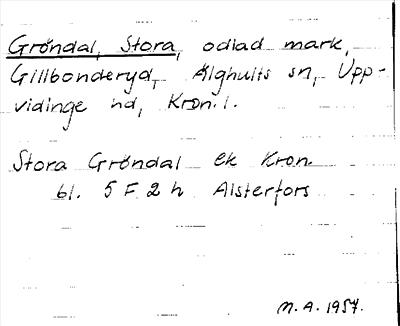 Gröndal, Stora, odlad mark,
Gillbonderyd, Älghults sn, Upp-
vidinge hd, Kron. l.
Stora Gröndal ek Kron.
bl. 5 F 2 h Alsterfors
M.A. 1957.